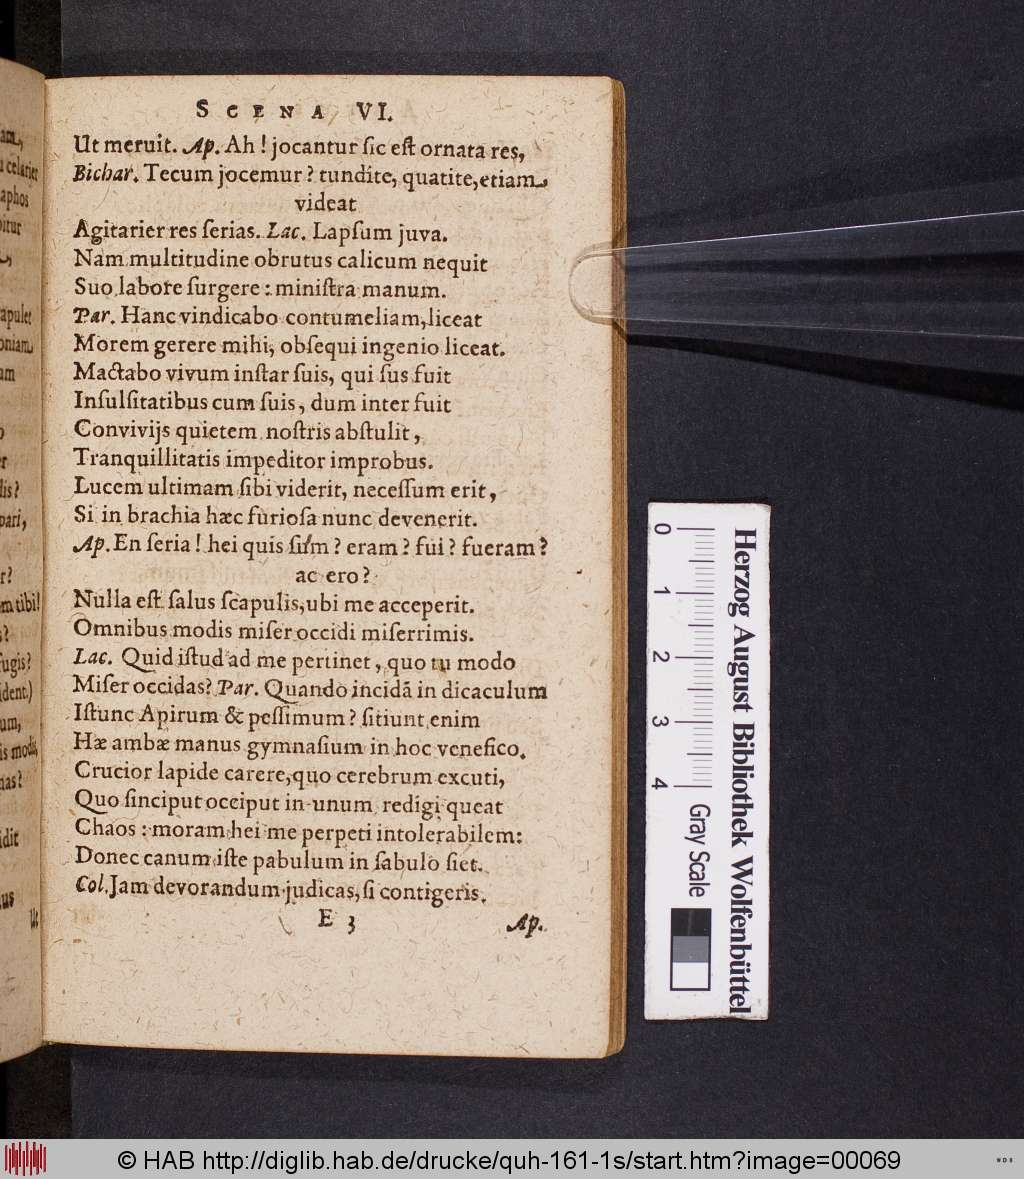 SCENA VI.
Ut meruit. Ap. Ah ! jocantur ſic eſt ornata res,
Bichar. Tecum jocemur ? tundite, quatite, etiam
videat
Agitarier res ſerias. Lac. Lapſum juva.
Nam multitudine obrutus calicum nequit
Suo labore ſurgere : miniſtra manum.
Par. Hanc vindicabo contumeliam, liceat
Morem gerere mihi, obſequi ingenio liceat.
Mactabo vivum inſtar ſuis, qui ſus fuit
Inſulſitatibus cum ſuis, dum inter fuit
Convivijs quietem noſtris abſtulit,
Tranquillitatis impeditor improbus.
Lucem ultimam ſibi viderit, neceſſum erit,
Si in brachia hæc furioſa nunc devenerit.
Ap. En ſeria ! hei quis ſum ? eram ? fui ? fueram ?
ac ero ?
Nulla eſt ſalus ſcapulis, ubi me acceperit.
Omnibus modis miſer occidi miſerrimis.
Lac. Quid iſtud ad me pertinet, quo tu modo
Miſer occidas? Par. Quando incidã in dicaculum
Iſtunc Apirum & peſſimum ? ſitiunt enim
Hæ ambæ manus gymnaſium in hoc venefico.
Crucior lapide carere, quo cerebrum excuti,
Quo ſinciput occiput in unum redigi queat
Chaos : moram hei me perpeti intolerabilem:
Donec canum iſte pabulum in ſabulo ſiet.
Col. Jam devorandum judicas, ſi contigeris.
E 3 Ap.
0 1 2 3 4
Gray Scale
Herzog August Bibliothek Wolfenbüttel
© HAB http://diglib.hab.de/drucke/quh-161-1s/start.htm?image=00069